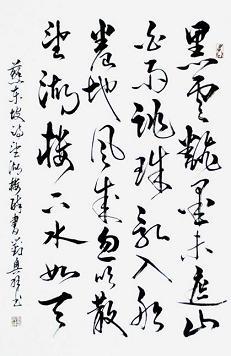 黑雲翻墨未遮山
白雨跳珠亂入船
卷地風來忽吹散
望湖樓下水如天
蘇東坡詩望湖樓醉書 劉興書